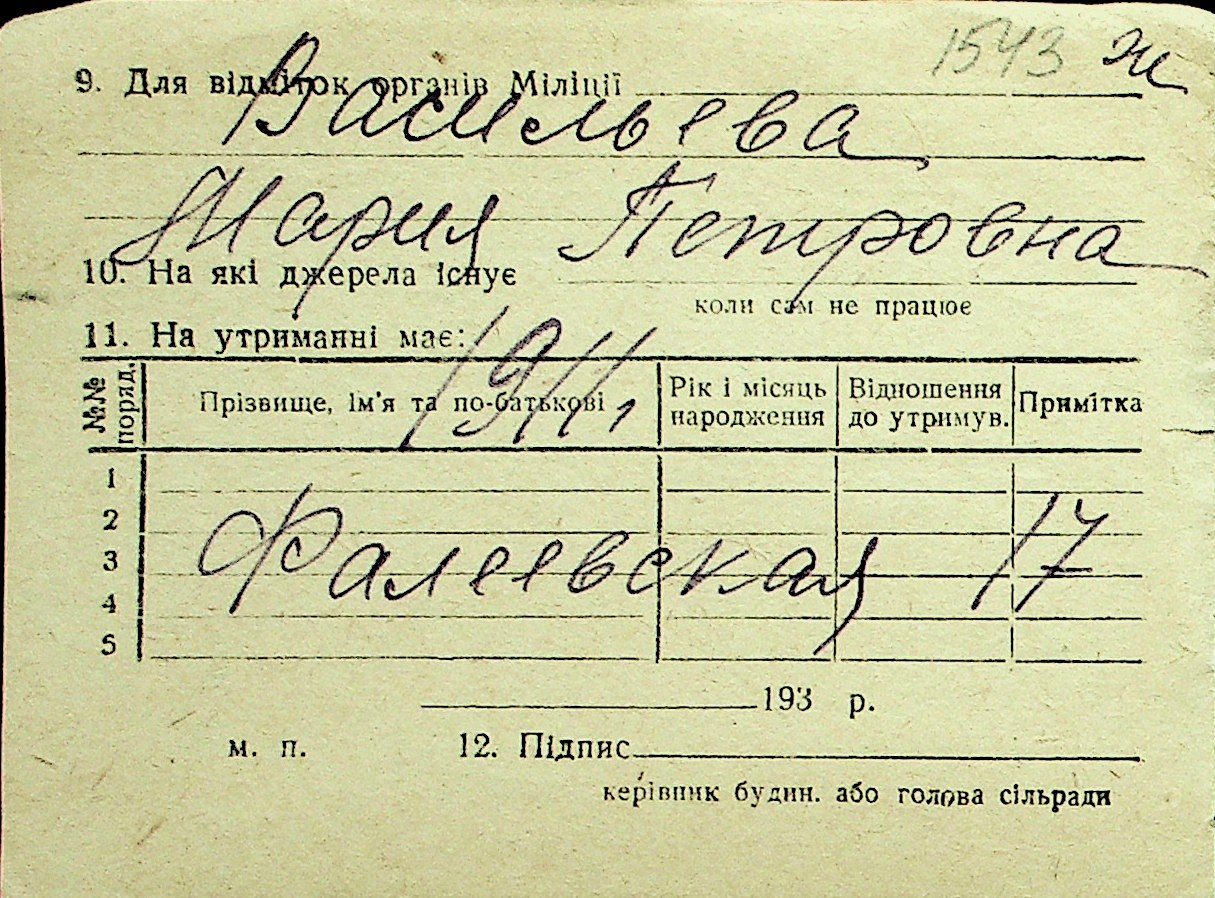 1543 ж
9. Для відміток органів Міліції
Васильева
Мария Петровна
10. На які джерела існує
коли сам не працює
11. На утриманні має:
1911,
№№ поряд. Прізвище, ім'я та по-батькові Рік і місяць народження Відношення до утримув. Примітка
1
2
Фалеевская 17
3
4
5
193 р.
м. п. 12. Підпис
керівник будин. або голова сільради